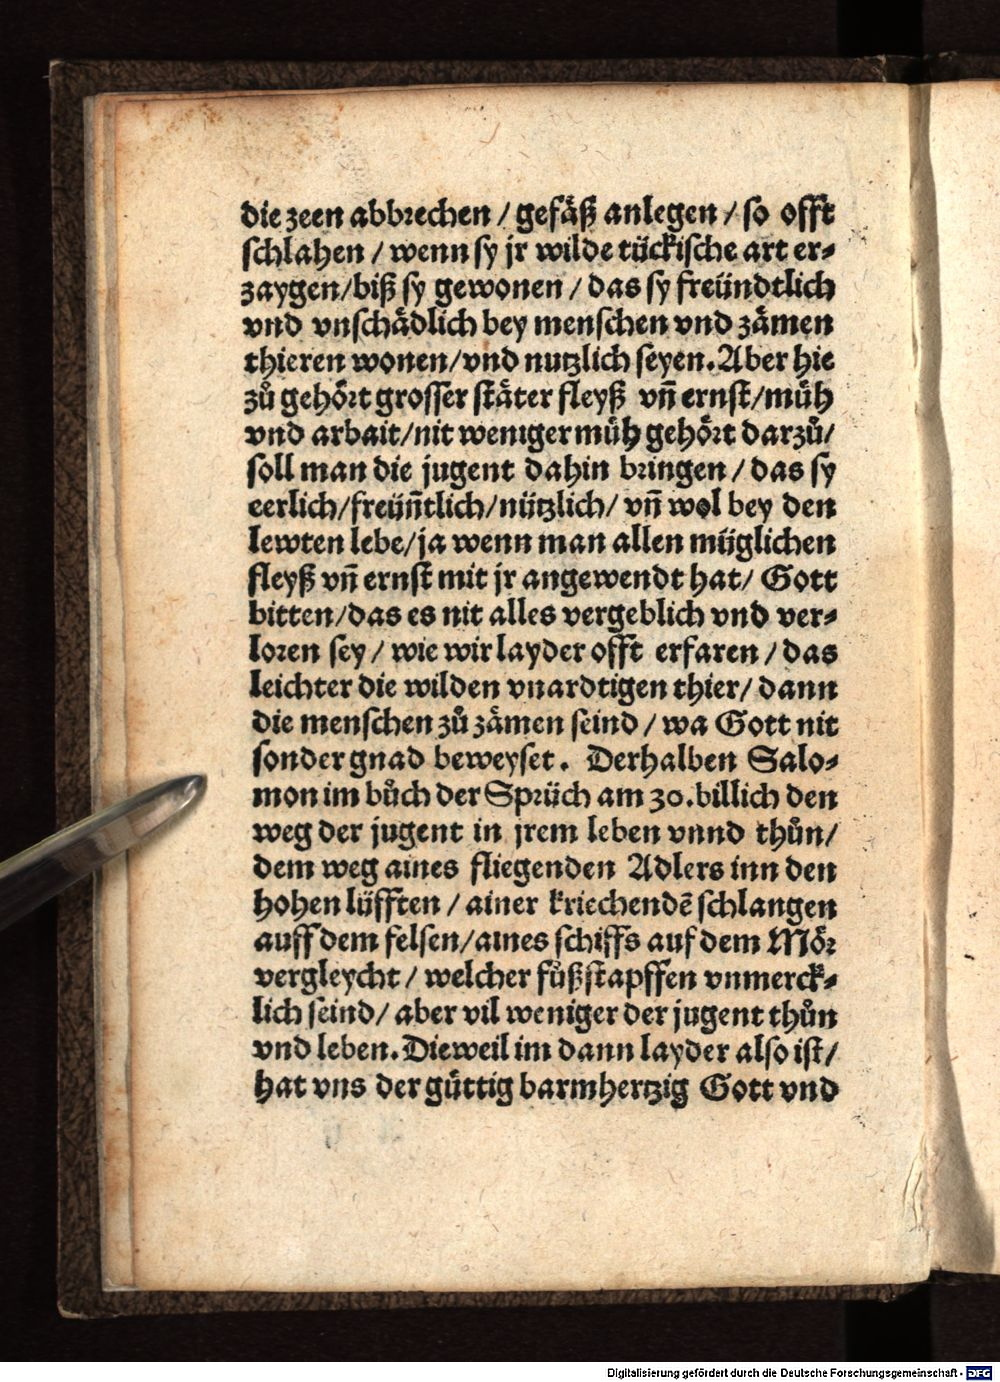 die zeen abbrechen / gefäß anlegen / so offt
schlahen / wenn sy jr wilde tückische art er⸗
zaygen/biß sy gewonen / das sy freündtlich
vnd vnschädlich bey menschen vnd zämen
thieren wonen/vnd nutzlich seyen. Aber hie
zů gehört grosser stäter fleyß vñ ernst/müh
vnd arbait/nit weniger müh gehört darzů/
soll man die jugent dahin bringen / das sy
eerlich/freüñtlich/nützlich/ vñ wol bey den
lewten lebe/ja wenn man allen müglichen
fleyß vñ ernst mit jr angewendt hat/ Gott
bitten/das es nit alles vergeblich vnd ver⸗
loren sey / wie wir layder offt erfaren / das
leichter die wilden vnardtigen thier/ dann
die menschen zů zämen seind / wa Gott nit
sonder gnad beweyset. Derhalben Salo⸗
mon im bůch der Sprüch am 30.billich den
weg der jugent in jrem leben vnnd thůn/
dem weg aines fliegenden Adlers inn den
hohen lüfften / ainer kriechendẽ schlangen
auff dem felsen/aines schiffs auf dem Mör
vergleycht / welcher fůßstapffen vnmerck⸗
lich seind/ aber vil weniger der jugent thůn
vnd leben. Dieweil im dann layder also ist/
hat vns der güttig barmhertzig Gott vnd
Digitalisierung gefördert durch die Deutsche Forschungsgemeinschaft - DFG